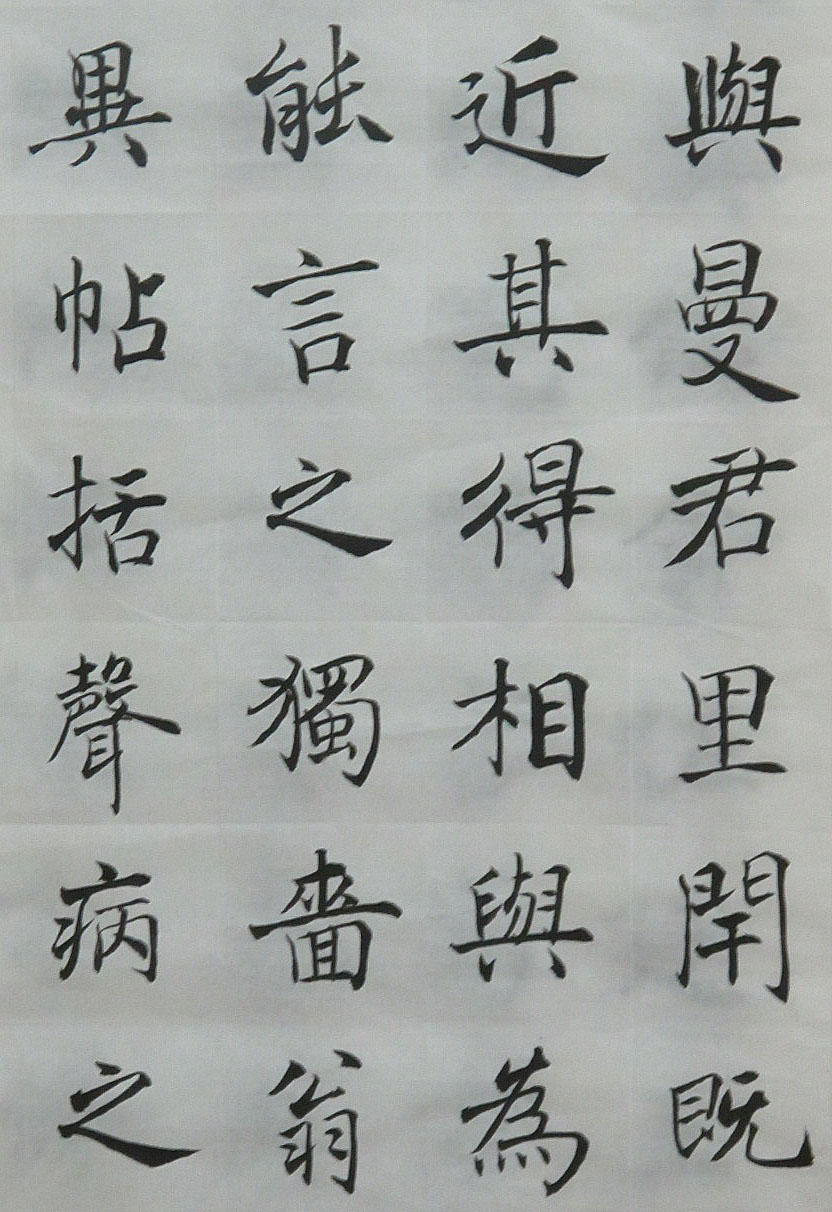 與曼君里閈既
近其得相與為
能言之獨嗇翁
異帖括聲病之